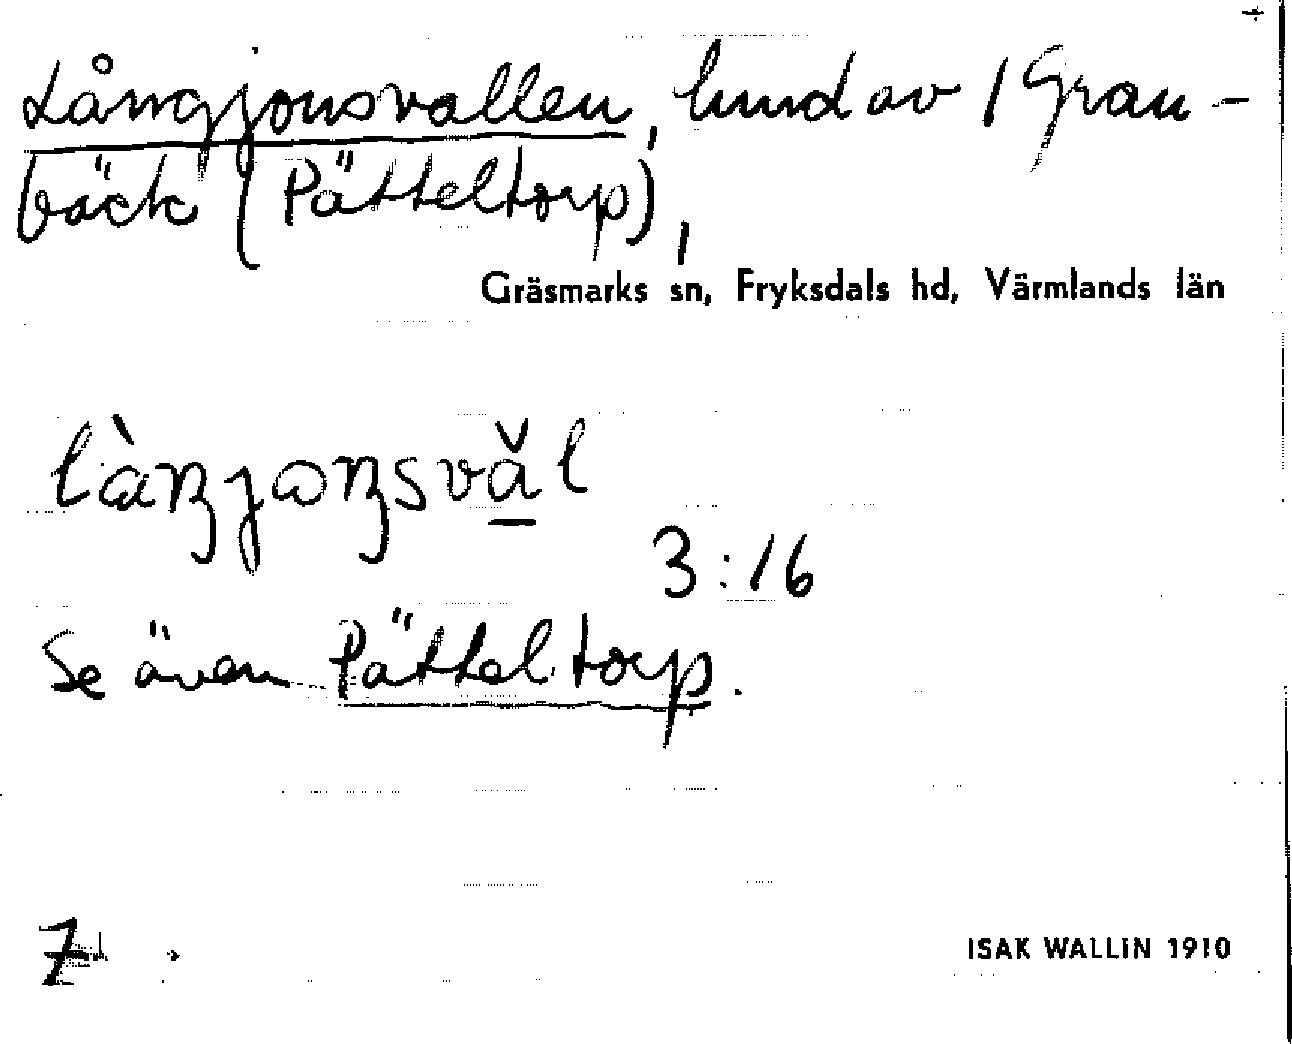 Långjonsvallen, hmd av 1 Gran-
bäck (Pätteltorp),
Gräsmarks sn, Fryksdals hd, Värmlands län
làŋjωŋsvăl
3:16
Se även Pätteltorp.
7
ISAK WALLIN 1910